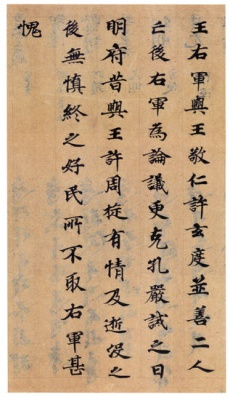 王右軍與王敬仁許玄度並善二人
亡後右軍為論議更克孔巖誡之曰
明府昔與王許周旋有情及逝没之
後無慎終之好民所不取右軍甚
愧